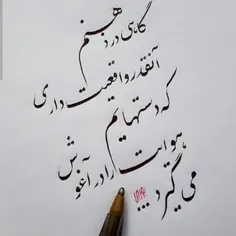 گاهی در ذهنم
آنقدر واقعیت داری
که دستهایم
هوایت را در آغوش
می گیرد...